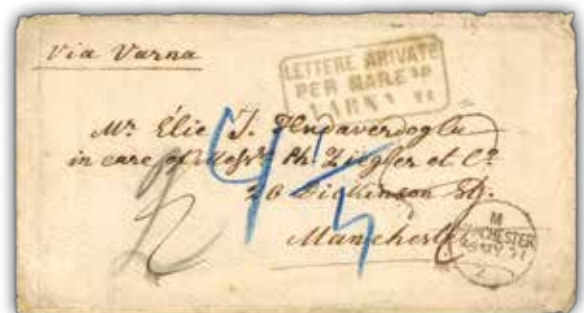 Via Varna
LETTERE ARIVATE
PER MARE
VARNA
Mr. Élie J.
in care of Messrs. Ph. Ziegler et Co.
26 Dickinson Str.
Manchester
M
MANCHESTER
2